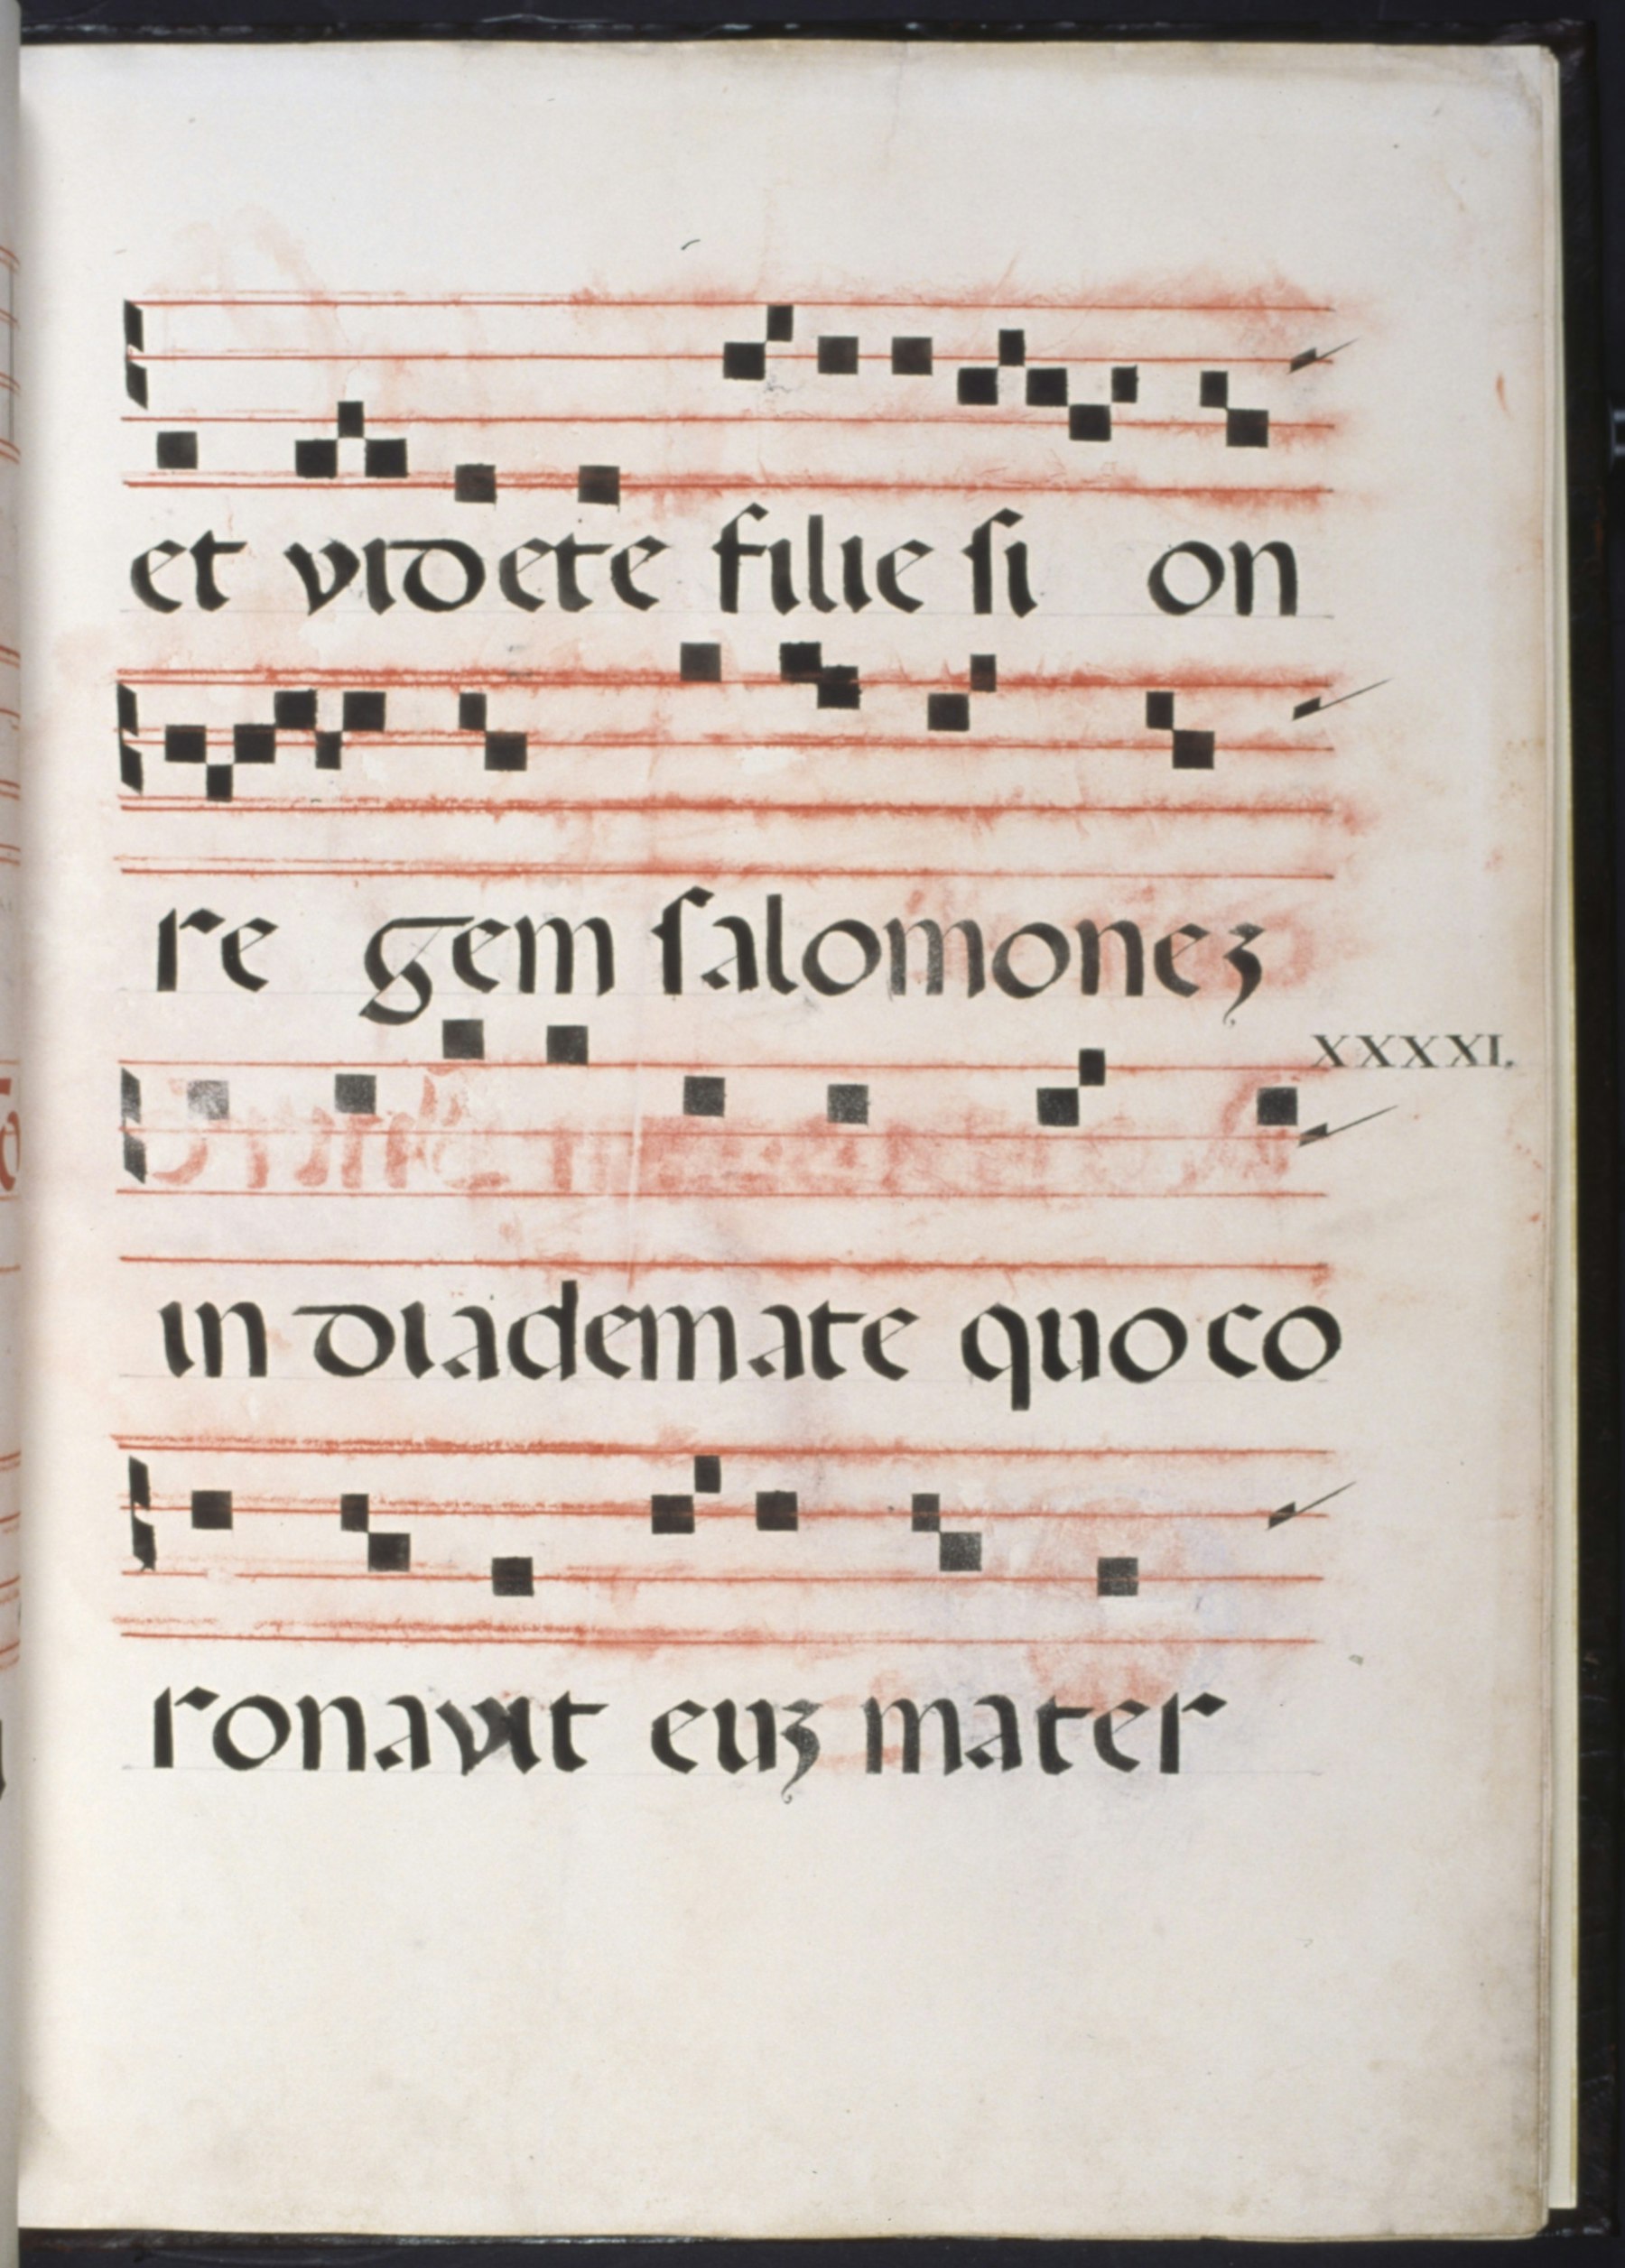 et videte filie ſi on
re gem ſalomoneʒ
XXXXI.
in diademate quo co
ronavit euʒ mater